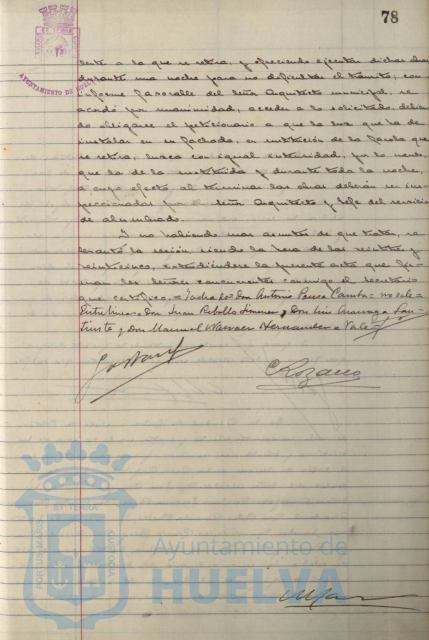 78
AYUNTAMIENTO DE HUELVA
dente a la que se retira, y ofreciendo ejecutar dichas obras
durante una noche para no dificultar el tránsito, con
informe favorable del Señor Arquitecto municipal, se
acordó por unanimidad, acceder a lo solicitado, debien-
do obligarse el peticionario a que la luz que ha de
instalar en su fachada, en sustitución de la farola que
se retira, luzca con igual intensidad, por lo menos,
que la de la sustituida y durante toda la noche,
a cuyo efecto, al terminar las obras deberán ser ins-
peccionadas por el Señor Arquitecto y Jefe del servicio
de alumbrado.
Y no habiendo mas asuntos de que tratar, se
levantó la sesión, siendo la hora de las veintiuna y
veinticinco, extendiéndose la presente acta que fir-
man los señores concurrentes conmigo el Secretario
que certifico.= Tachado= Don Antonio Ponce = no vale=
Entrelíneas= Don Juan Rebollo y Don Luis
y Don Manuel Narvaez Hernandez = Vale=
PORTUS MARIS
ET TERRAE
CUSTODIA
Ayuntamiento de
HUELVA